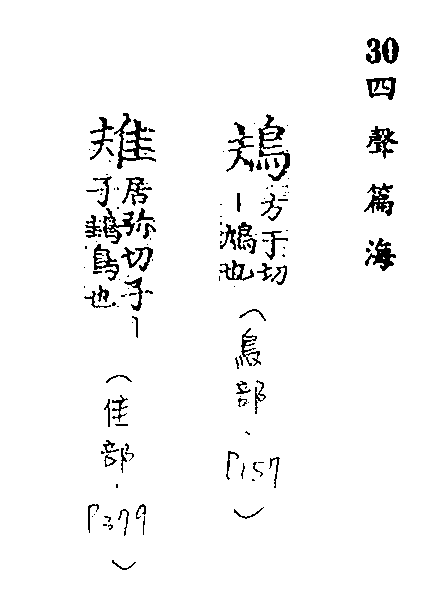 30 四聲篇海
鳺
方于切
｜也
（鳥部、P157）
居弥切子｜
子鳥也
（隹部．P379）